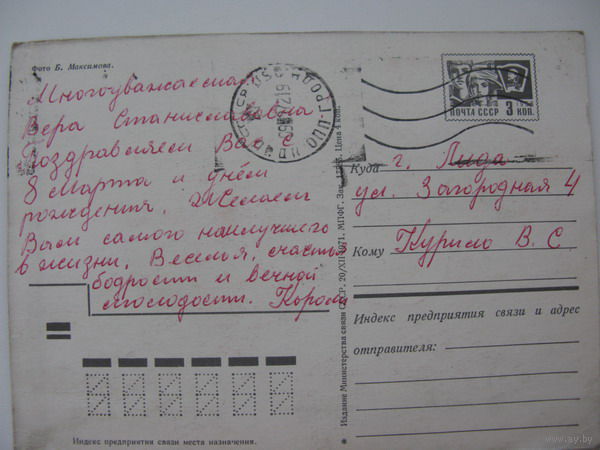 Фото Б. Максимова.
Многоуважаемая
Вера Станиславовна
Поздравляем Вас с
8 марта и днём
рождения. Желаем
Вам самого наилучшего
в жизни, Веселья, счастья
бодрости и вечной
молодости.
Индекс предприятия связи места назначения.
Издание Министерства связи СССР. 20/XII-1971. МПФГ. Зак. Цена 4 коп.
ПОЧТА СССР 3 КОП.
Куда г. Лида
ул. Загородная 4
Кому Курило В. С.
Индекс предприятия связи и адрес
отправителя:
www.ay.by